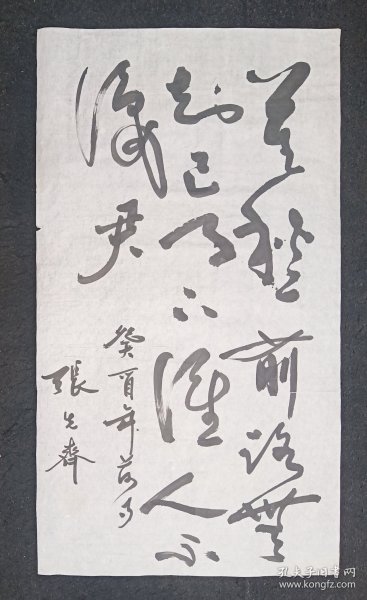 莫愁前路無
知己天下誰人不
識君
癸酉年荷月
張先齊
孔夫子旧书网
www.kongfz.com